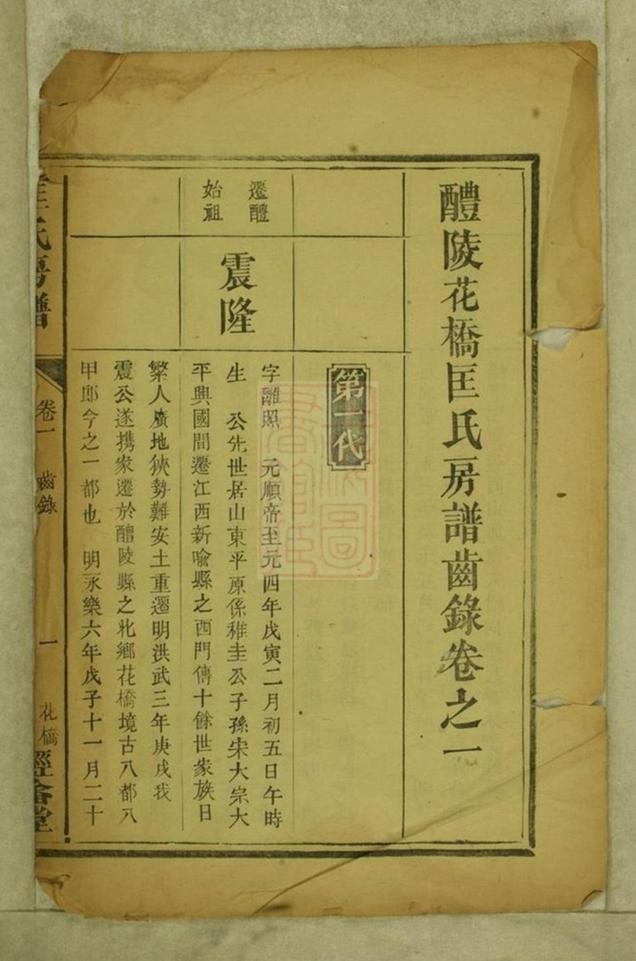 醴陵花橋匡氏房譜齒錄卷之一
第一代
遷醴
始祖
震隆
字離照 元順帝至元四年戊寅二月初五日午時
生 公先世居山東平原係稚圭公子孫宋大宗大
平興國間遷江西新喻縣之西門傳十餘世家族日
繁人廣地狹勢難安土重遷明洪武三年庚戌我
震公遂携家遷於醴陵縣之北鄉花橋境古八都八
甲郎今之一都也 明永樂六年戊子十一月二十
匡氏房譜
卷一 齒錄
一
花橋
經畬堂